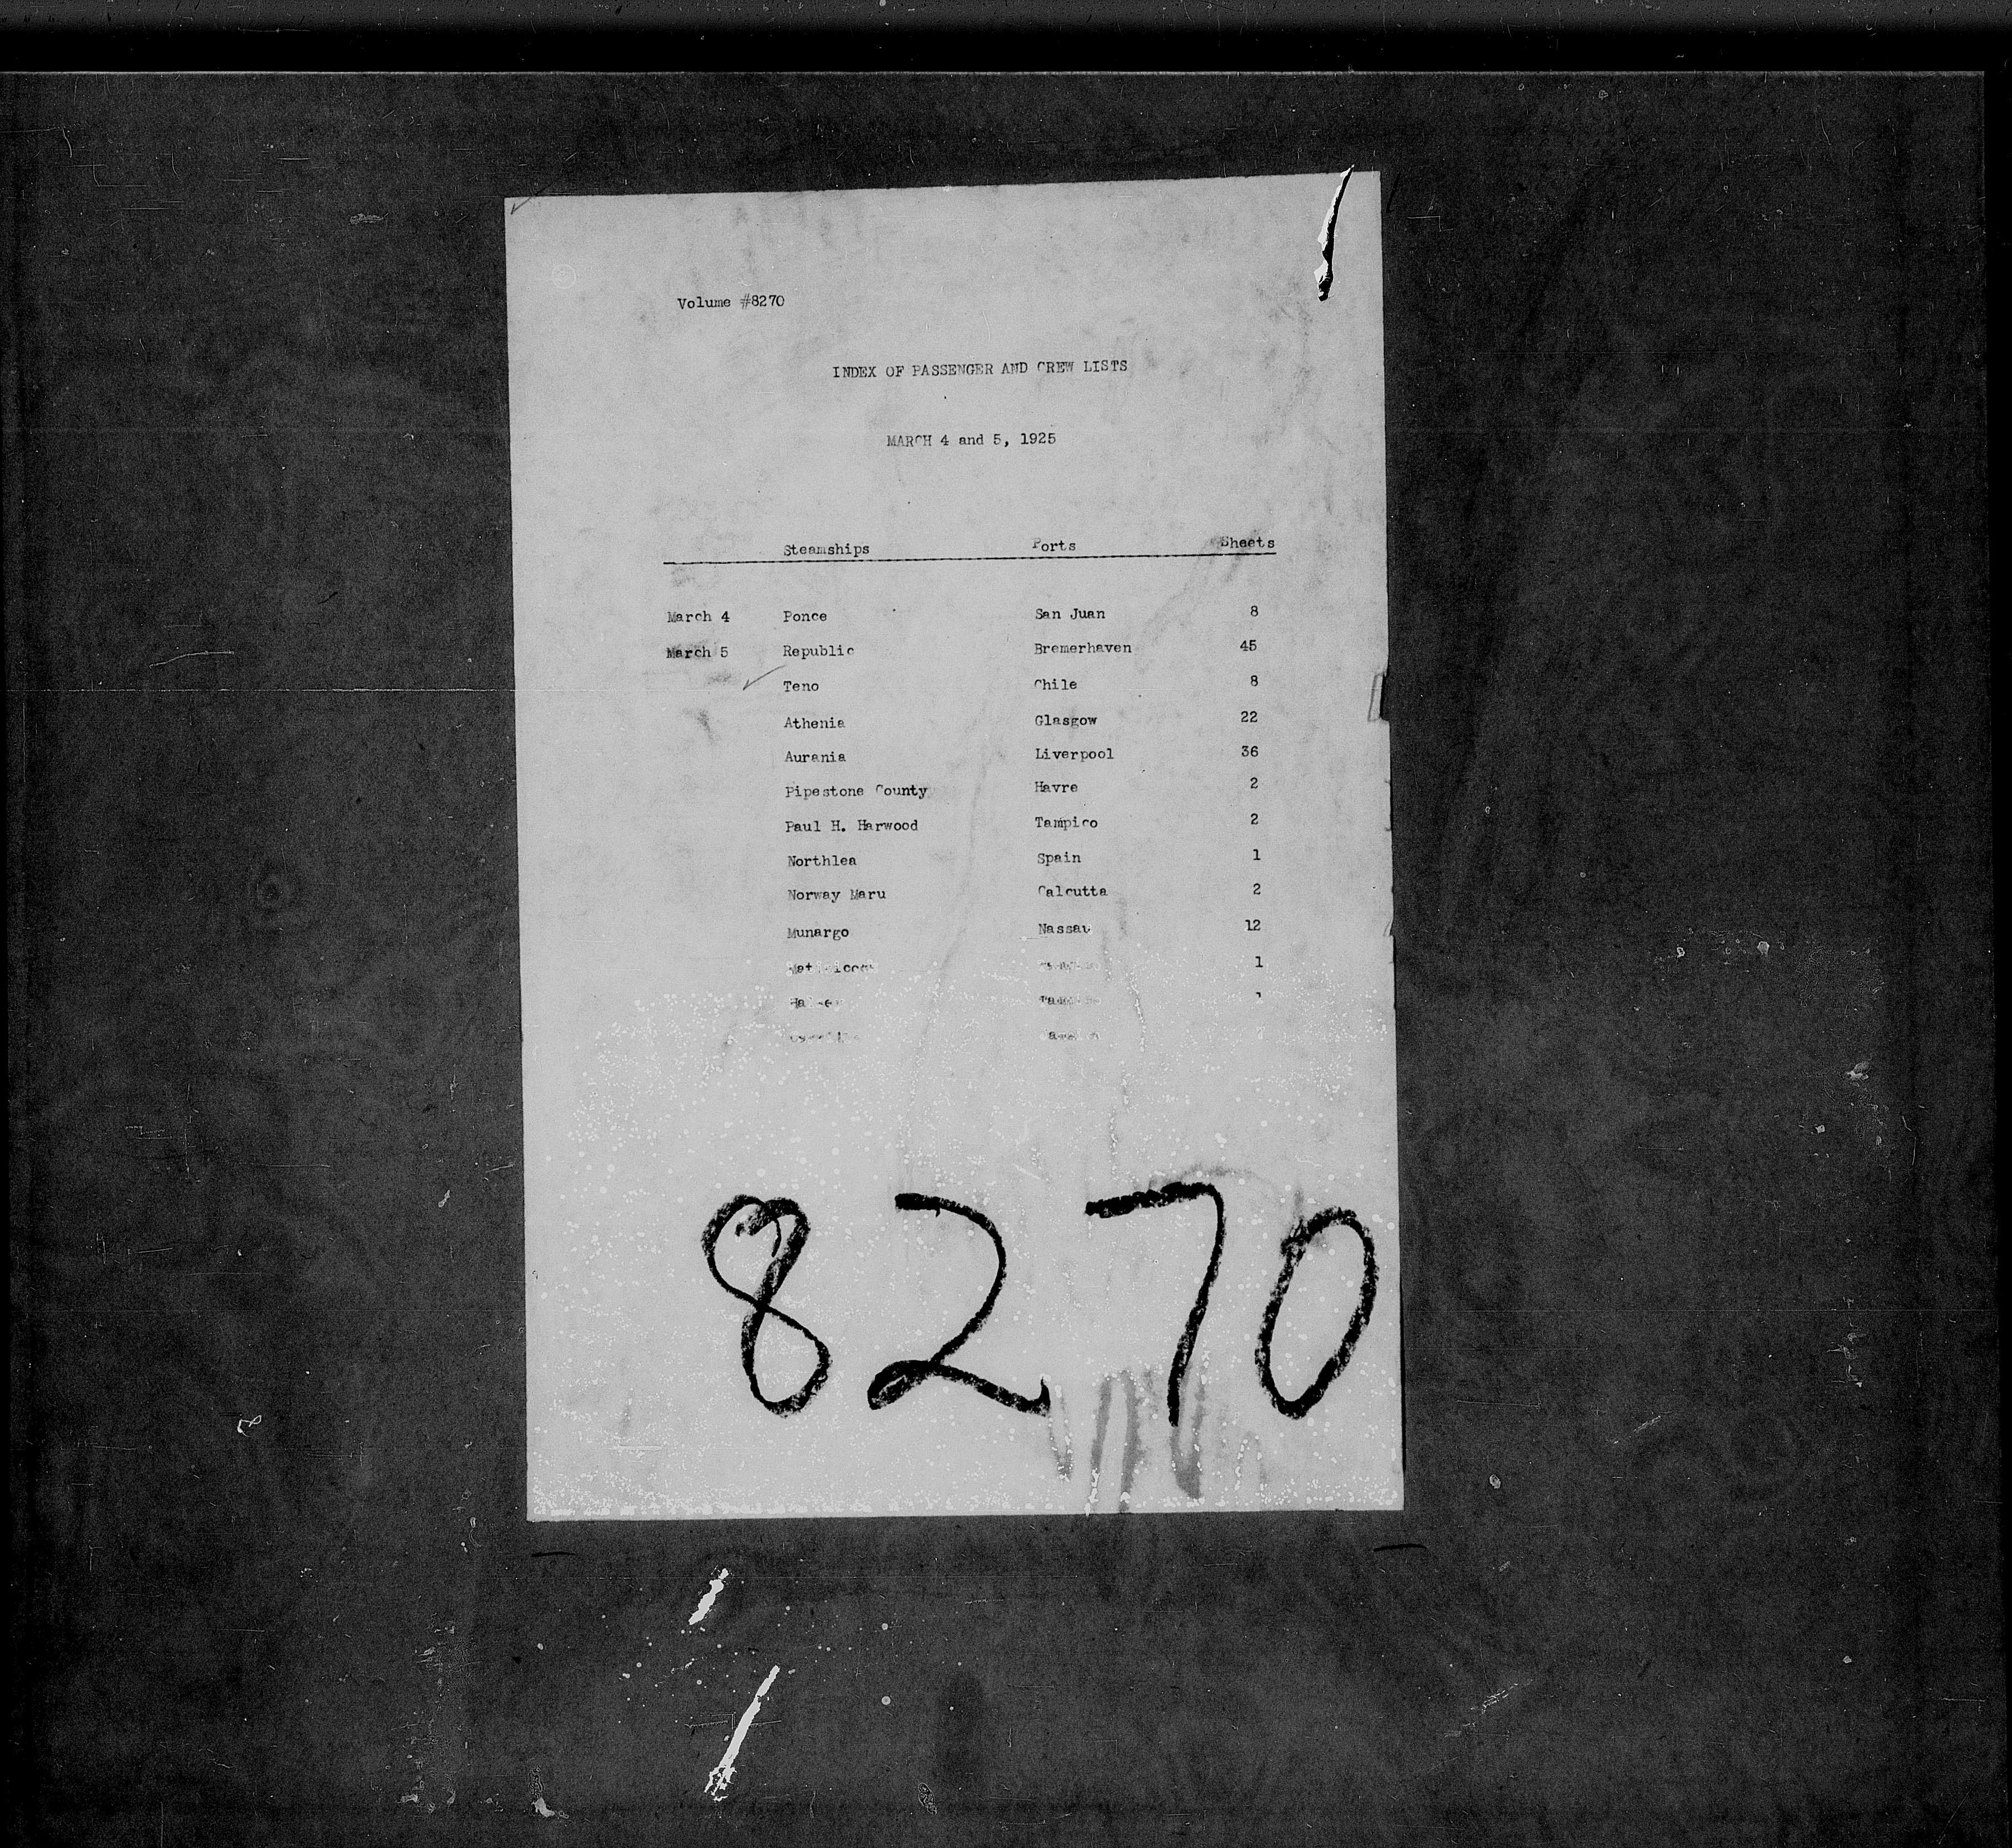 Volume #8270
INDEX OF PASSENGER AND CREW LISTS
MARCH 4 and 5, 1925
Steamships Ports Sheets
March 4 Ponce San Juan 8
March 5 Republic Bremerhaven 45
Teno Chile 8
Athenia Glasgow 22
Aurania Liverpool 36
Pipestone County Havre 2
Paul H. Harwood Tampico 2
Northlea Spain 1
Norway Maru Calcutta 2
Munargo Nassau 12
1
8270